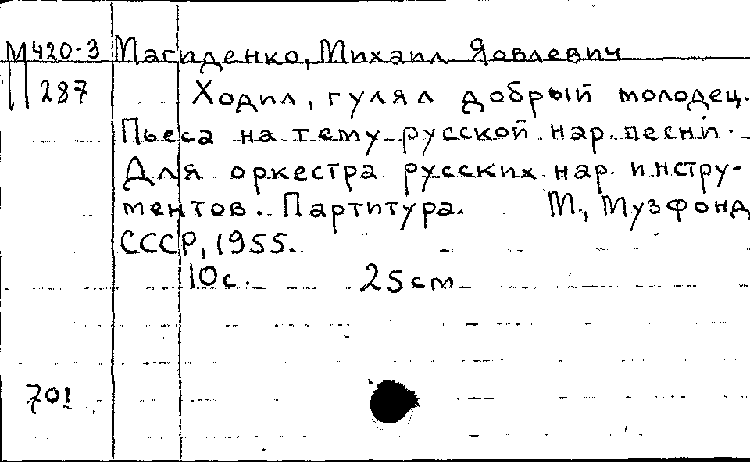 М420-3 Магиденко, Михаил Яовлевич
287 Ходил, гулял добрый молодец.
Пьеса на тему русской нар. песни.
Для оркестра русских нар. инстру-
ментов. Партитура. М., Музфонд
СССР, 1955.
10с. 25см
701